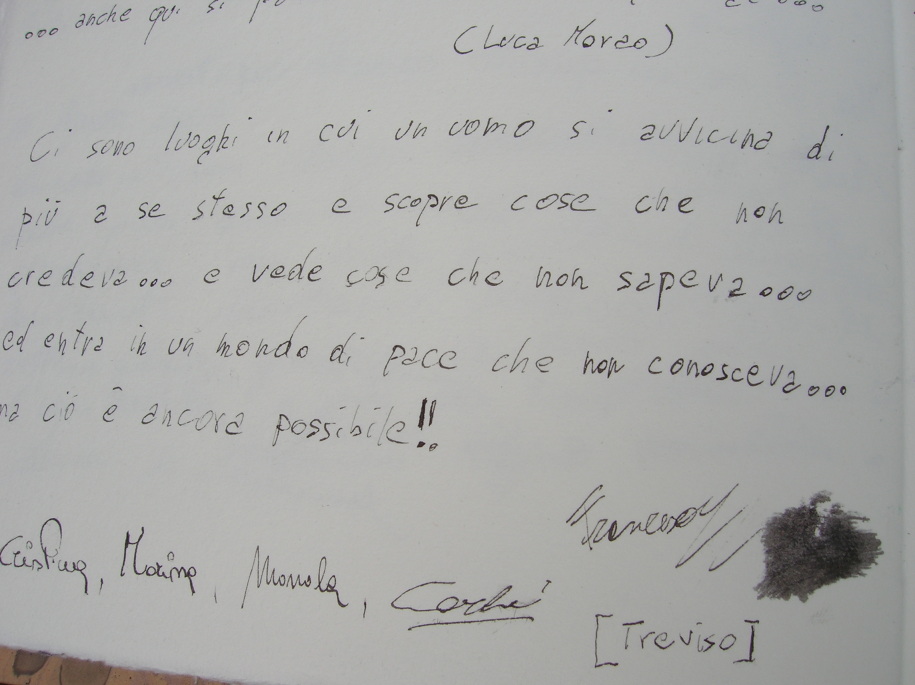 ... anche qui si
(Luca Moreo)
Ci sono luoghi in cui un uomo si avvicina di
più a se stesso e scopre cose che non
credeva... e vede cose che non sapeva...
ed entra in un mondo di pace che non conosceva...
ma ciò è ancora possibile!!
Francesco
Cristina, Marina, Manola,
[Treviso]